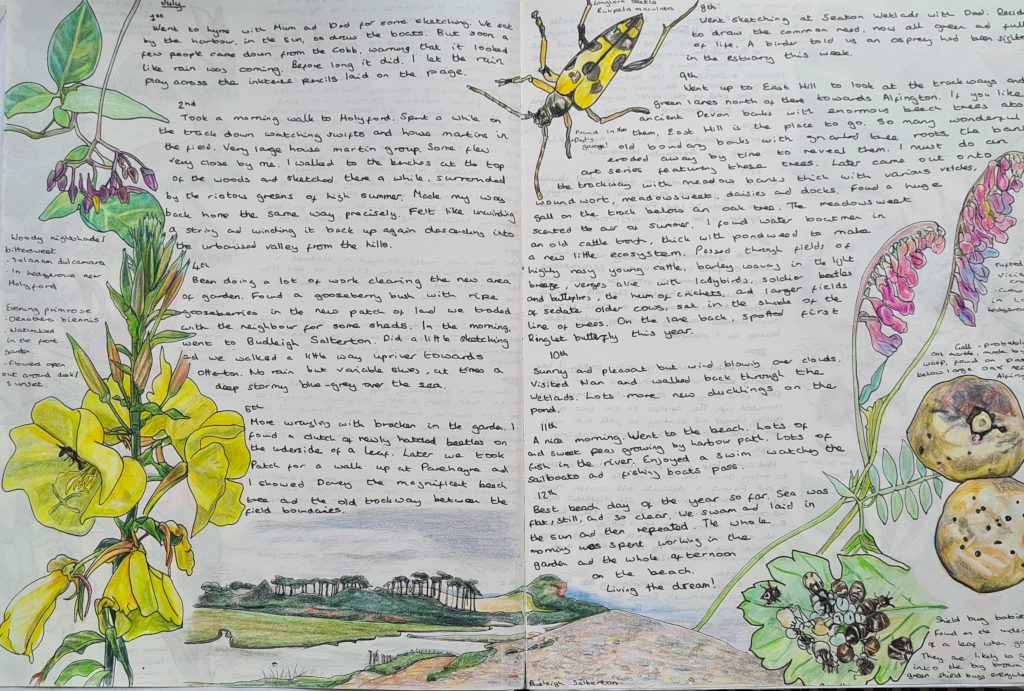 July
1st
Went to Lyme with Mum and Dad for some sketching. We sat
by the harbour, in the sun, to draw the boats. But soon a
few people came down from the Cobb, warning that it looked
like rain was coming. Before long it did. I let the rain
play across the inktense pencils laid on the page.
2nd
Took a morning walk to Holyford. Spent a while on
the track down watching swifts and house martins in
the field. Very large house martin group. Some flew
very close by me. I walked to the benches at the top
of the woods and sketched there a while, surrounded
by the riotous greens of high summer. Made my way
back home the same way precisely. Felt like unwinding
a string and winding it back up again descending into
the urbanised valley from the hills.
4th
Been doing a lot of work clearing the new area
of garden. Found a gooseberry bush with ripe
gooseberries in the new patch of land we traded
with the neighbour for some sheds. In the morning,
went to Budleigh Salterton. Did a little sketching
and we walked a little way upriver towards
Otterton. No rain but variable skies, at times a
deep stormy blue-grey over the sea.
5th
More wrangling with bracken in the garden. I
found a clutch of newly hatched beetles on
the underside of a leaf. Later we took
Patch for a walk up at Farehayne and
I showed Davey the magnificent beech
tree and the old trackway between the
field boundaries.
Woody nightshade/
bittersweet
- Solanum dulcamara
In hedgerows near
Holyford
Evening primrose
- Oenothera biennis
- Naturalised
in the front
garden.
- Flowers open
out around dusk/
sunset
Longhorn beetle
Rutpela maculata
Found in the
garage!
8th
Went sketching at Seaton Wetlands with Dad.
to draw the common reed, now all green and full
of life. A birder told us an osprey had been sighted
in the estuary this week.
9th
Went up to East Hill to look at the trackways and
green lanes north of there towards Alfington. If you like
ancient Devon banks with enormous beech trees atop
them, East Hill is the place to go. So many wonderful
old boundary banks with gnarled tree roots, the bank
eroded away by time to reveal them. I must do an
art series featuring these trees. Later came out onto
the trackway with meadow banks thick with various vetches,
woundwort, meadowsweet, daisies and docks. Found a huge
gall on the track below an oak tree. The meadowsweet
scented the air of summer. I found water boatmen in
an old cattle trough, thick with pondweed to make
a new little ecosystem. Passed through fields of
highly nosy young cattle, barley waving in the light
breeze, verges alive with ladybirds, soldier beetles
and butterflies, the hum of crickets, and larger fields
of sedate older cows, sat in the shade of the
line of trees. On the lane back, spotted first
Ringlet butterfly this year.
10th
Sunny and pleasant but wind blowing over clouds.
Visited Nan and walked back through the
Wetlands. Lots more new ducklings on the
pond.
11th
A nice morning. Went to the beach. Lots of
and sweet peas growing by harbour path. Lots of
fish in the river. Enjoyed a swim watching the
sailboats and fishing boats pass.
12th
Best beach day of the year so far. Sea was
flat, still, and so clear. We swam and laid in
the sun and then repeated. The whole
morning was spent working in the
garden and the whole afternoon
on the beach.
Living the dream!
Tufted
Gall - probably
oak marble, made by
wasp, found on
below large oak near
Shield bug babies
Found on the underside
of a leaf when
They are likely to
into the big brown
green shield bugs
Budleigh Salterton